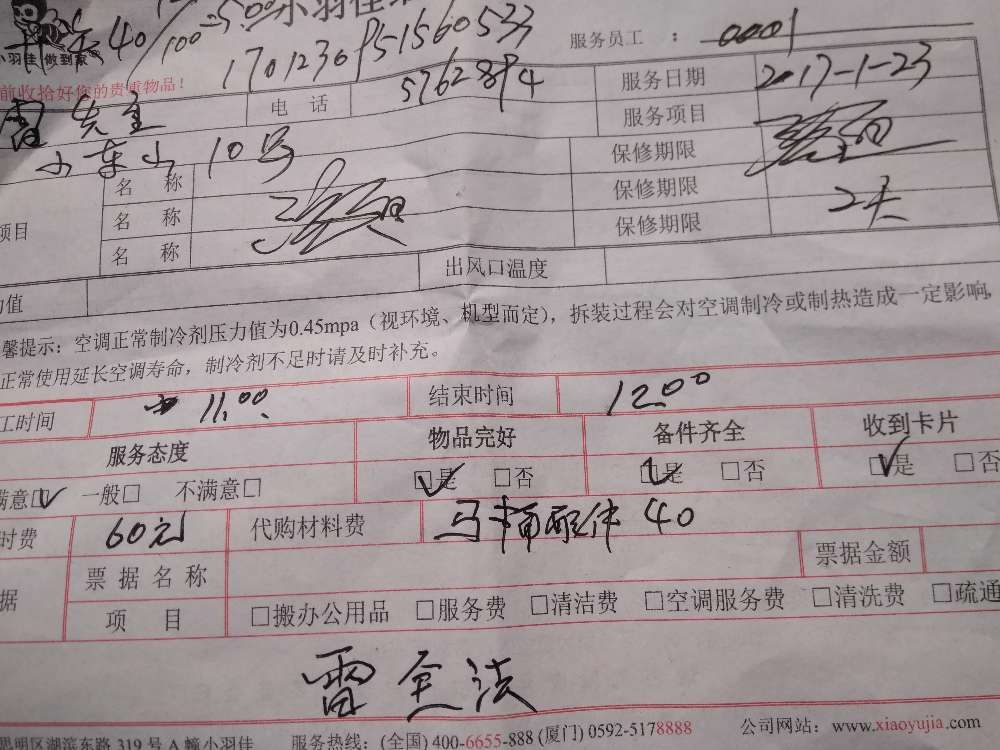 40/100=500 小羽佳
小羽佳 做到家
1701230 P51560533
服务员工 ： 0001
前收拾好您的贵重物品！
雷先生 电 话 5762894 服务日期 2017-1-23
服务项目
小东山10号 保修期限
名 称 保修期限
项目 名 称 保修期限 2天
名 称
力值 出风口温度
馨提示：空调正常制冷剂压力值为0.45mpa（视环境、机型而定），拆装过程会对空调制冷或制热造成一定影响，
正常使用延长空调寿命，制冷剂不足时请及时补充。
工时间 11.00 结束时间 12.00
服务态度 物品完好 备件齐全 收到卡片
满意□ 一般□ 不满意□ □是 □否 □是 □否 □是 □否
时费 60元 代购材料费 马桶配件 40
据 票 据 名 称 票据金额
项 目 □搬办公用品 □服务费 □清洁费 □空调服务费 □清洗费 □疏通
雷全法
思明区湖滨东路 319 号 A 幢小羽佳 服务热线：(全国) 400-6655-888 (厦门) 0592-5178888 公司网站：www.xiaoyujia.com